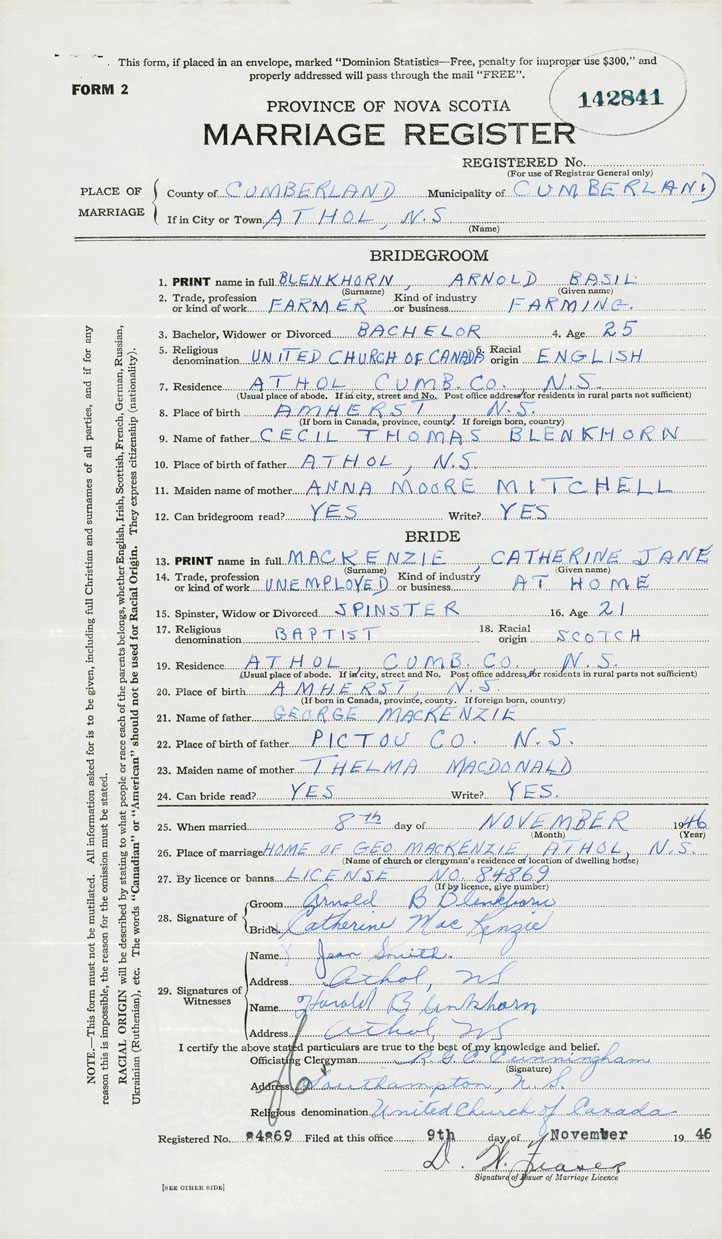 This form, if placed in an envelope, marked "Dominion Statistics—Free, penalty for improper use $300," and
properly addressed will pass through the mail "FREE".
FORM 2
142841
PROVINCE OF NOVA SCOTIA
MARRIAGE REGISTER
REGISTERED No.
(For use of Registrar General only)
PLACE OF MARRIAGE
County of CUMBERLAND Municipality of CUMBERLAND
If in City or Town ATHOL, N.S
(Name)
BRIDEGROOM
1. PRINT name in full BLENKHORN, ARNOLD BASIL
(Surname) (Given name)
2. Trade, profession or kind of work FARMER Kind of industry or business FARMING.
3. Bachelor, Widower or Divorced BACHELOR 4. Age 25
5. Religious denomination UNITED CHURCH OF CANADA 6. Racial origin ENGLISH
7. Residence ATHOL CUMB. CO., N.S.
(Usual place of abode. If in city, street and No. Post office address for residents in rural parts not sufficient)
8. Place of birth AMHERST, N.S.
(If born in Canada, province, county. If foreign born, country)
9. Name of father CECIL THOMAS BLENKHORN
10. Place of birth of father ATHOL, N.S.
11. Maiden name of mother ANNA MOORE MITCHELL
12. Can bridegroom read? YES Write? YES
BRIDE
13. PRINT name in full MACKENZIE, CATHERINE JANE
(Surname) (Given name)
14. Trade, profession or kind of work UNEMPLOYED Kind of industry or business AT HOME
15. Spinster, Widow or Divorced SPINSTER 16. Age 21
17. Religious denomination BAPTIST 18. Racial origin SCOTCH
19. Residence ATHOL, CUMB. CO., N.S.
(Usual place of abode. If in city, street and No. Post office address for residents in rural parts not sufficient)
20. Place of birth AMHERST, N.S.
(If born in Canada, province, county. If foreign born, country)
21. Name of father GEORGE MACKENZIE
22. Place of birth of father PICTOU CO. N.S.
23. Maiden name of mother THELMA MACDONALD
24. Can bride read? YES Write? YES.
25. When married 8th day of NOVEMBER 1946
(Month) (Year)
26. Place of marriage HOME OF GEO MACKENZIE, ATHOL, N.S.
(Name of church or clergyman's residence or location of dwelling house)
27. By licence or banns LICENSE NO. 84869
(If by licence, give number)
28. Signature of
Groom Arnold B Blenkhorn
Bride Catherine MacKenzie
29. Signatures of Witnesses
Name Jean Smith.
Address Athol, NS
Name Harold Blenkhorn
Address Athol, NS
I certify the above stated particulars are true to the best of my knowledge and belief.
Officiating Clergyman R.G.C. Cunningham
(Signature)
Address Southampton, N.S.
Religious denomination United Church of Canada
Registered No. 84869 Filed at this office 9th day of November 1946
D. W. Fraser
Signature of Issuer of Marriage Licence
[SEE OTHER SIDE]
NOTE.—This form must not be mutilated. All information asked for is to be given, including full Christian and surnames of all parties, and if for any
reason this is impossible, the reason for the omission must be stated.
RACIAL ORIGIN will be described by stating to what people or race each of the parents belongs, whether English, Irish, Scottish, French, German, Russian,
Ukrainian (Ruthenian), etc. The words "Canadian" or "American" should not be used for Racial Origin. They express citizenship (nationality).